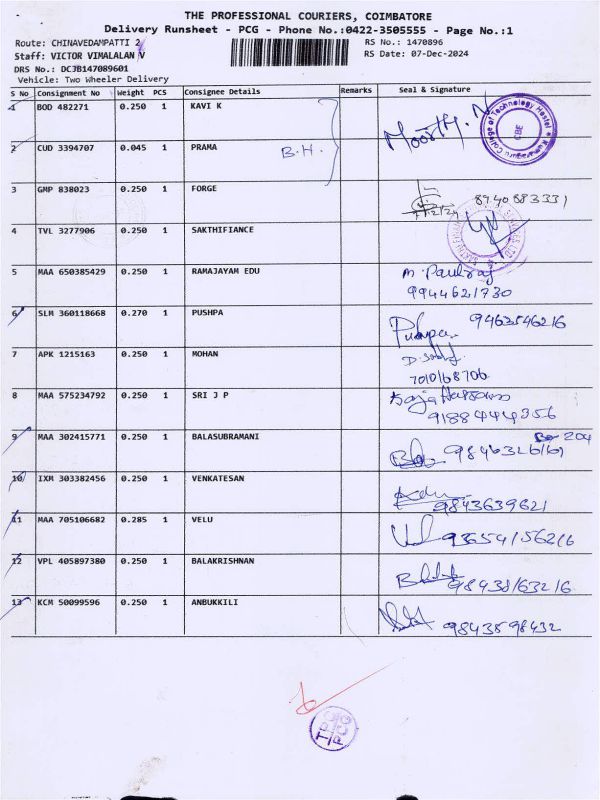 THE PROFESSIONAL COURIERS, COIMBATORE
Delivery Runsheet - PCG - Phone No.:0422-3505555 - Page No.:1
Route: CHINAVEDAMPATTI 2
RS No.: 1470896
Staff: VICTOR VIMALALAN V
RS Date: 07-Dec-2024
DRS No.: DCJB147089601
Vehicle: Two Wheeler Delivery
S No Consignment No Weight PCS Consignee Details Remarks Seal & Signature
1 BOD 482271 0.250 1 KAVI K
Moorthy. N
College of Technology Hostel
CBE
2 CUD 3394707 0.045 1 PRAMA B.H.
3 GMP 838023 0.250 1 FORGE 8940883331
4 TVL 3277906 0.250 1 SAKTHIFIANCE
5 MAA 650385429 0.250 1 RAMAJAYAM EDU M. Paulraj
9944621730
6 SLM 360118668 0.270 1 PUSHPA Pushpa 9463546216
7 APK 1215163 0.250 1 MOHAN
7010168706
8 MAA 575234792 0.250 1 SRI J P
9188444356
9 MAA 302415771 0.250 1 BALASUBRAMANI 204
9846326161
10 IXM 303382456 0.250 1 VENKATESAN
9843639621
11 MAA 705106682 0.285 1 VELU
93654156216
12 VPL 405897380 0.250 1 BALAKRISHNAN
98438163216
13 KCM 50099596 0.250 1 ANBUKKILI
9843598432